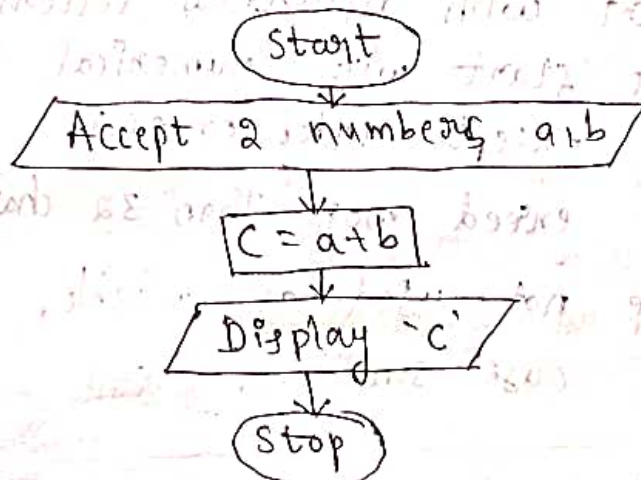 Start
Accept 2 numbers, a,b
C = a+b
Display 'c'
Stop